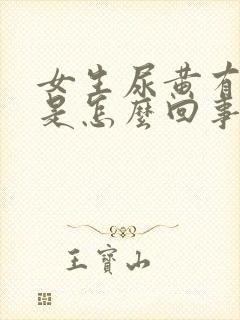 女生尿黄有
是怎麼回事
王寶山